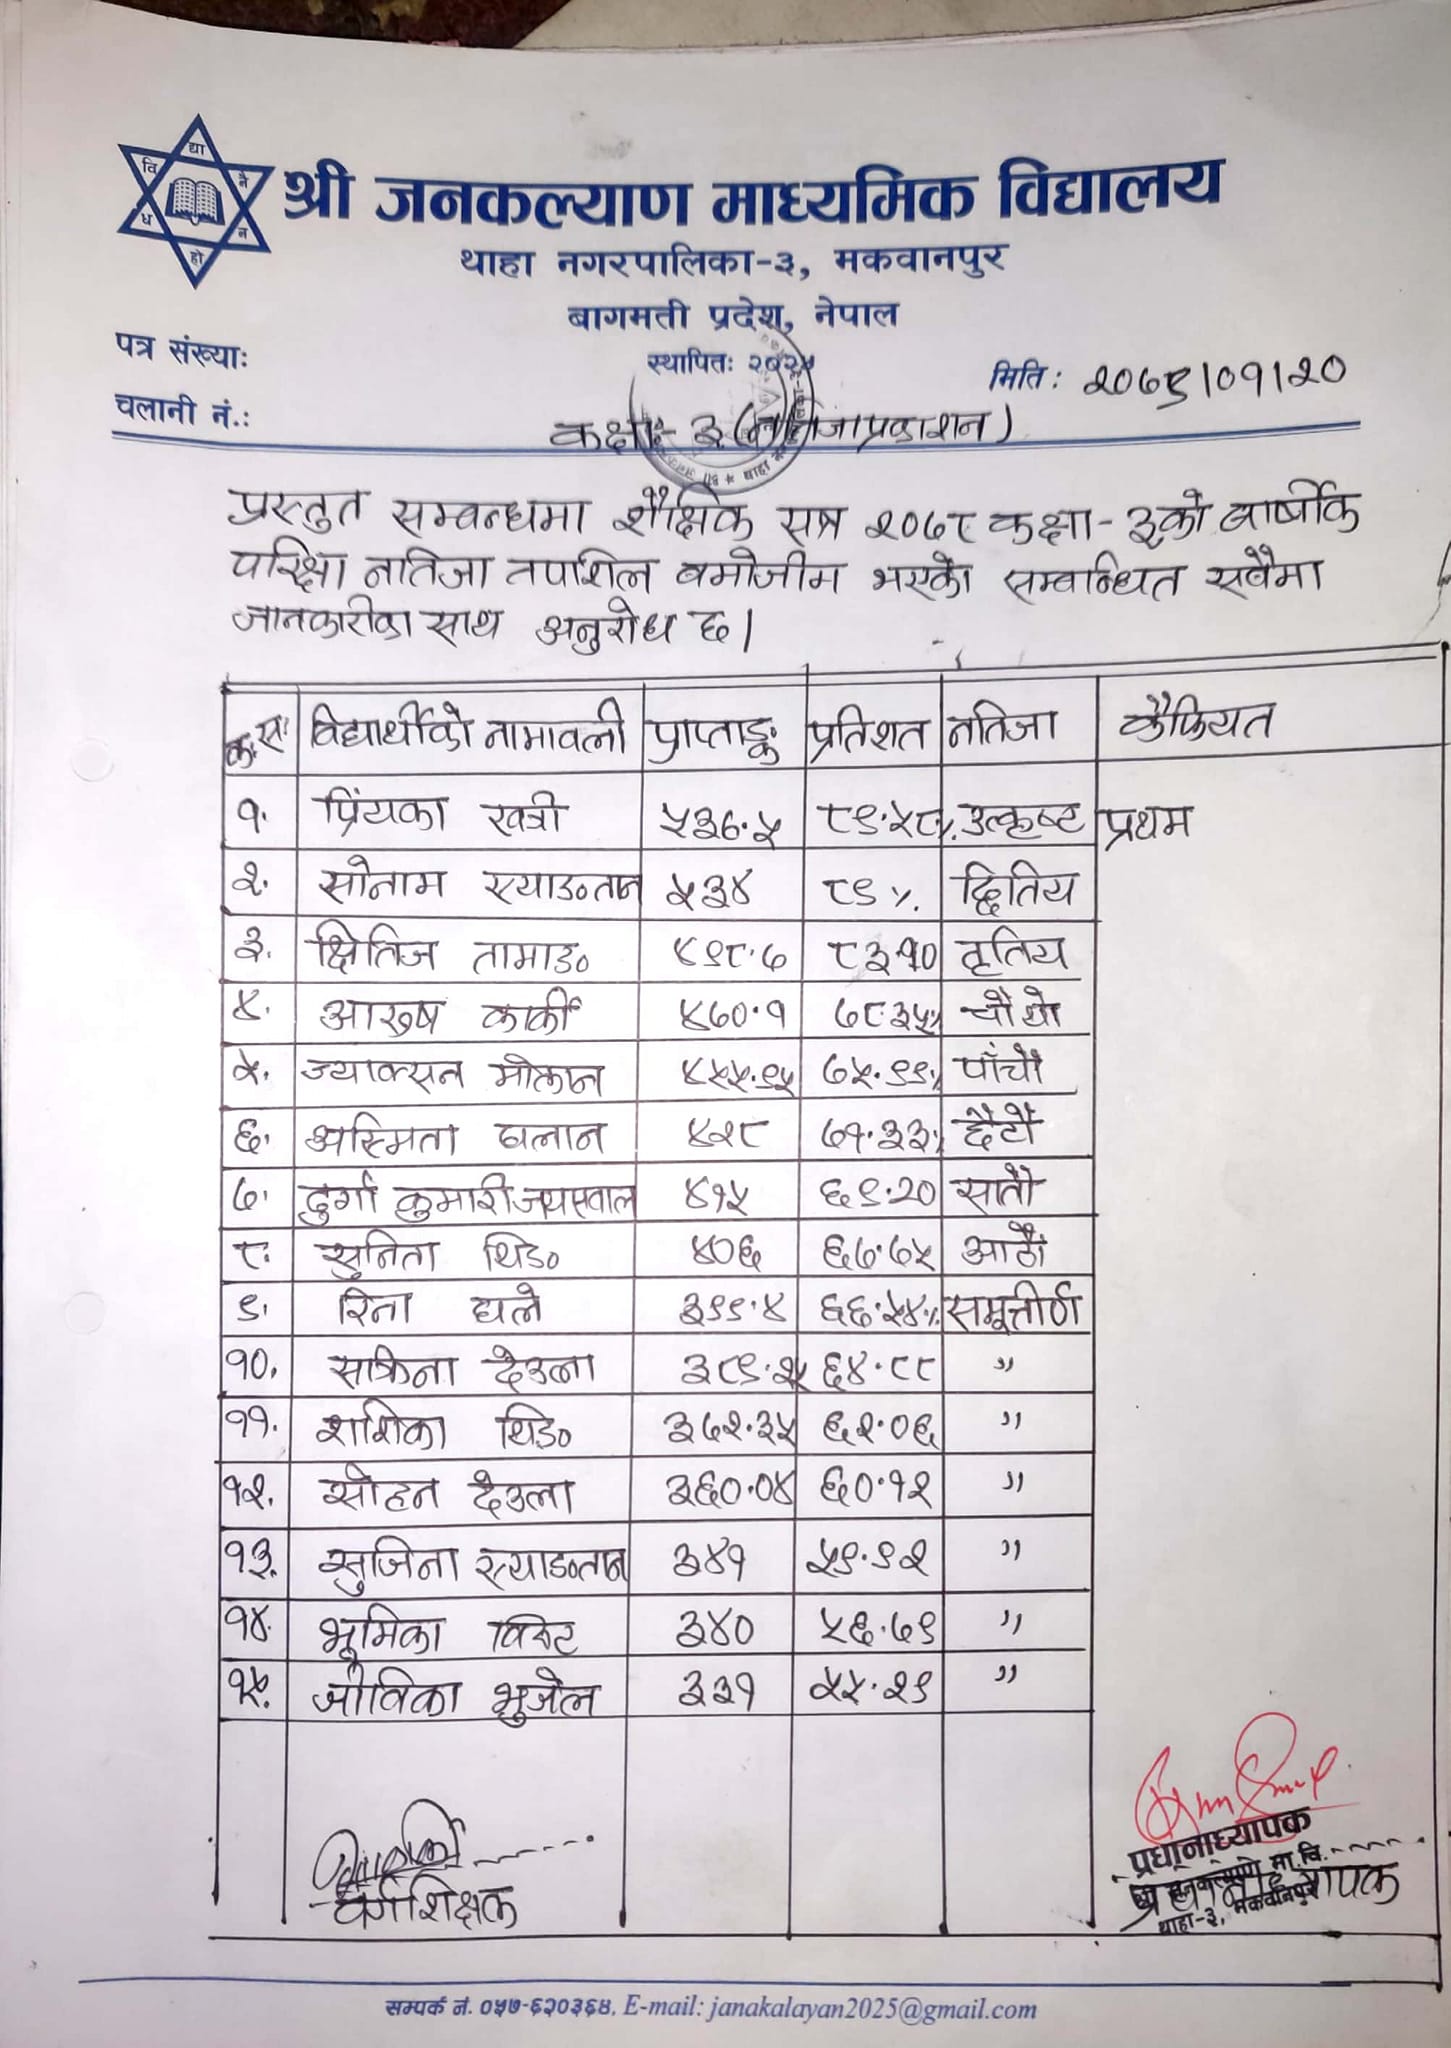 विद्या धनै होन
श्री जनकल्याण माध्यमिक विद्यालय
थाहा नगरपालिका-३, मकवानपुर
बागमती प्रदेश, नेपाल
पत्र संख्याः
स्थापितः २०२५
मिति: २०७९।०१।२०
चलानी नं.:
कक्षा - ३ (नतिजा प्रकाशन)
प्रस्तुत सम्वन्धमा शैक्षिक सत्र २०७८ कक्षा - ३को वार्षीक
परिक्षा नतिजा तपशिल बमोजीम भएको सम्वान्धित सवैमा
जानकारीका साथ अनुरोध छ।
क्र.स. विद्यार्थीको नामावली प्राप्ताङ्क प्रतिशत नतिजा कैफियत
१. प्रिंयका खत्री ५३७.५ ८९.५८% उत्कृष्ट प्रथम
२. सोनाम स्याङतान ५३४ ८९%. द्वितिय
३. क्षितिज तामाङ ४९८.७ ८३.१० तृतिय
४. आरुष कार्की ४७०.१ ७८.३५% चौथो
५. ज्याक्सन मोक्तान ४५५.९५ ७५.९९% पाँचौ
६. अस्मिता घलान ४२८ ७१.३३% छैटौ
७. दुर्गा कुमारी जयसवाल ४१५ ६९.२० सातौ
८. सुनिता थिङ ४०६ ६७.७५ आठौ
९. रिना घले ३९९.४ ६६.५४% समूत्तीर्ण
१०. साक्रिना देउला ३८९.२५ ६४.८८ "
११. शशिका थिङ ३७२.३५ ६२.०६ "
१२. सोहन देउला ३६०.०४ ६०.१२ "
१३. सुजिना स्याङतान ३४१ ५९.९२ "
१४. भूमिका विष्ट ३४० ५६.७९ "
१५. जीविका भुजेल ३३१ ५५.२९ "
वर्गशिक्षक
प्रधानाध्यापक
श्री जनकल्याण मा.वि.
थाहा-३, मकवानपुर
प्रधानाध्यापक
सम्पर्क नं. ०५७-६२०३६४, E-mail: janakalayan2025@gmail.com